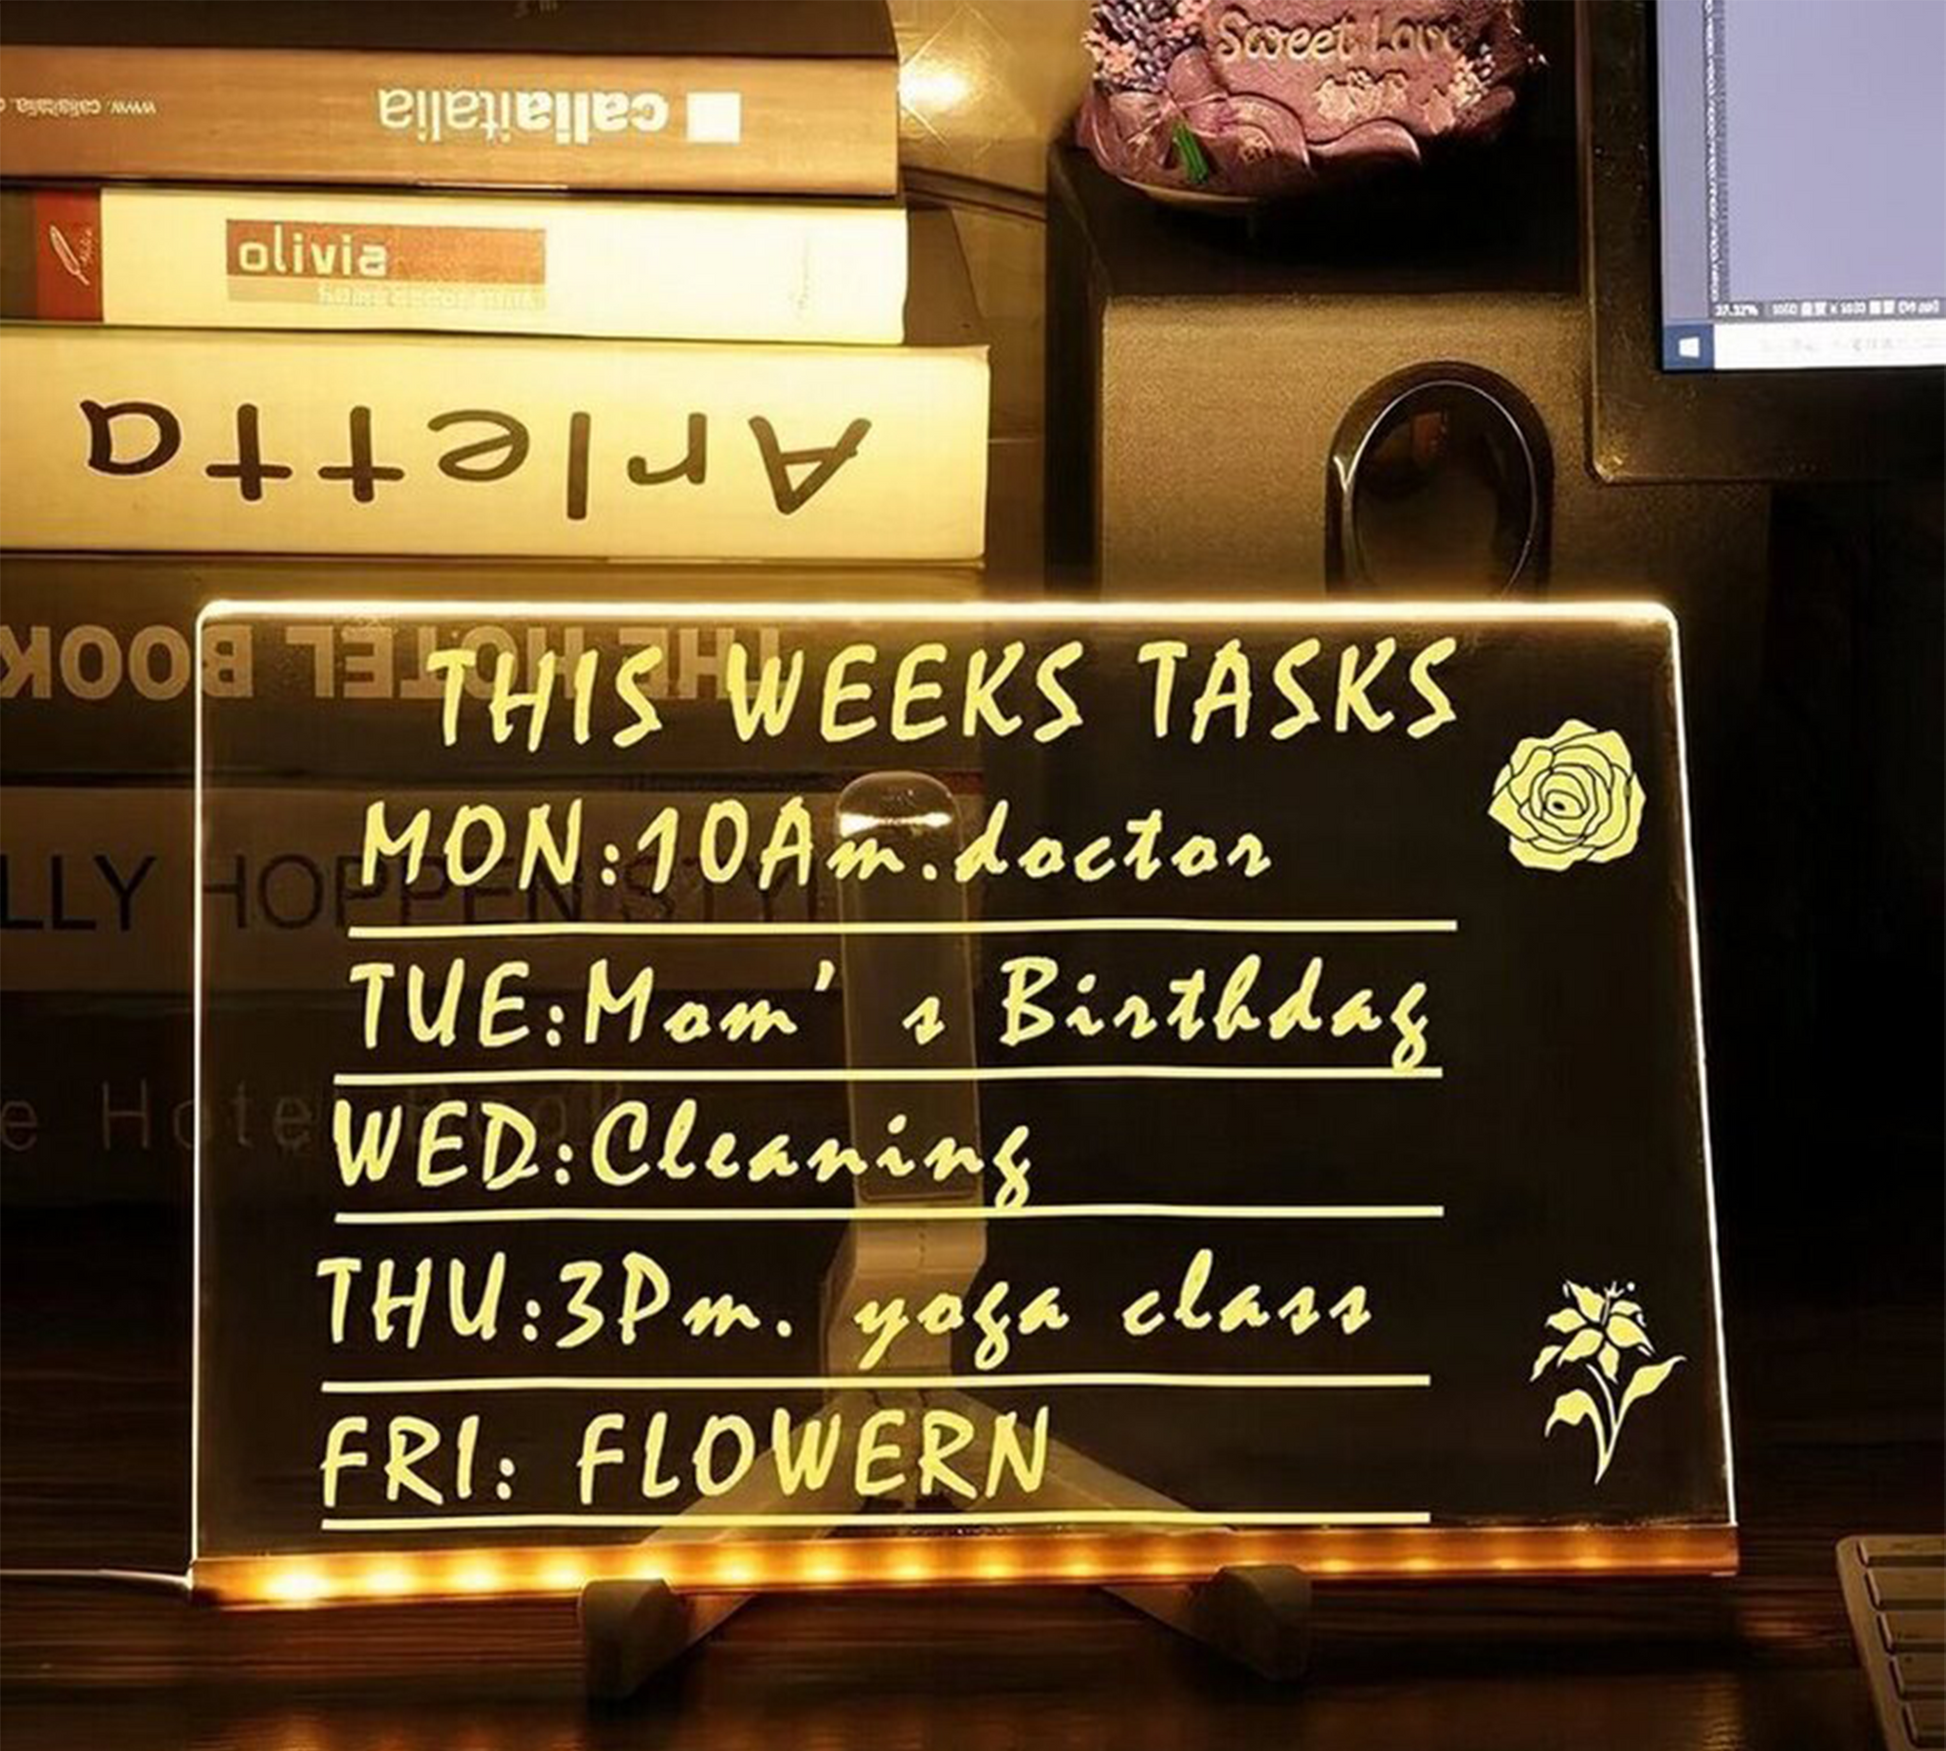 caliaitalia
www.caliaitalia.
olivia
Sweet Love
Arletta
THE HOTEL BOOK
THIS WEEKS TASKS
MON:10Am.doctor
LLY HOPPEN STYL
TUE:Mom's Birthday
e Hotel Book
WED:Cleaning
THU:3Pm. yoga class
FRI: FLOWERN